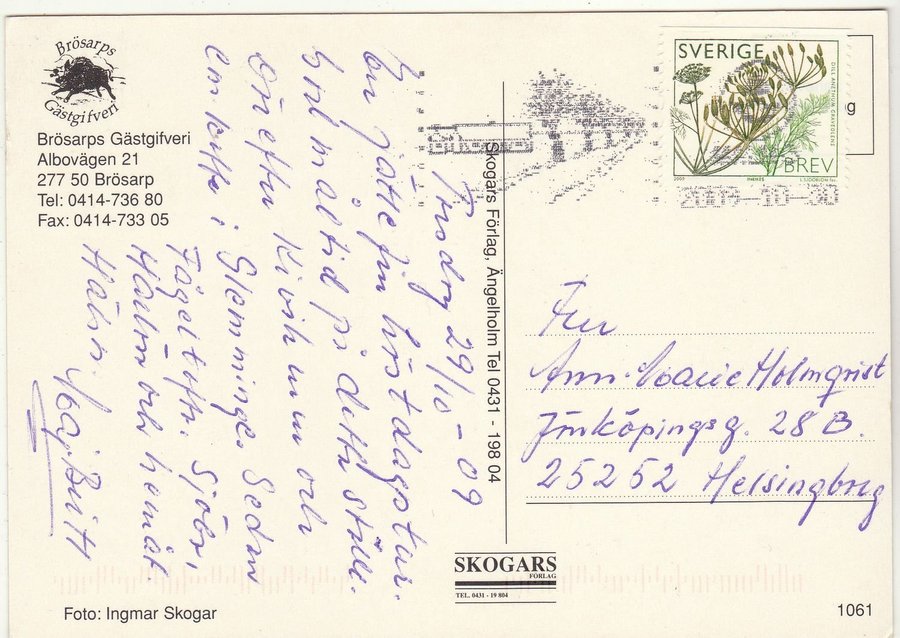 Brösarps
Gästgifveri
Brösarps Gästgifveri
Albovägen 21
277 50 Brösarp
Tel: 0414-736 80
Fax: 0414-733 05
Torsdag 29/10-09
En jättefin höstdagstur.
God måltid på detta ställe.
Orrefu Kivik mm och
en kaffe i Glemminge. Sedan
Fågeltofta. Sjöbo,
och hemåt.
Häls. MajBritt
Skogars Förlag, Ängelholm Tel 0431 - 198 04
SVERIGE
DILL ANETHUM GRAVEOLENS
BREV
2009-10-30
g
Fru
Ann-Marie Holmqrist
Jönköpingsg. 28 B.
25252 Helsingborg
SKOGARS
FÖRLAG
TEL. 0431 - 19 804
Foto: Ingmar Skogar
1061